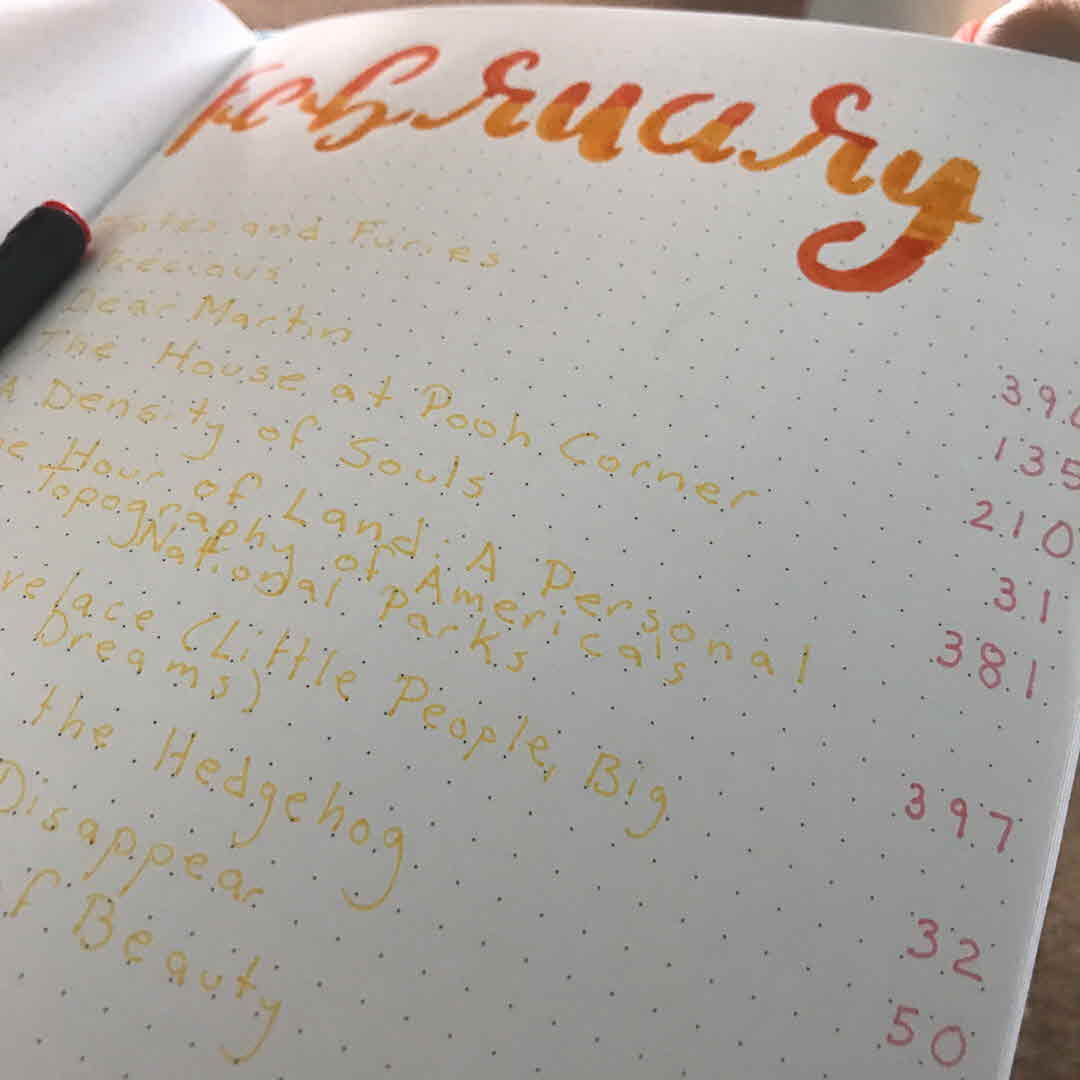 February
Fates and Furies 390
Precious 135
Dear Martin 210
The House at Pooh Corner 31
A Density of Souls 381
Hour of Land: A Personal
Topography of America's
National Parks 397
(Little People, Big
Dreams) 32
the Hedgehog 50
Disappear
of Beauty